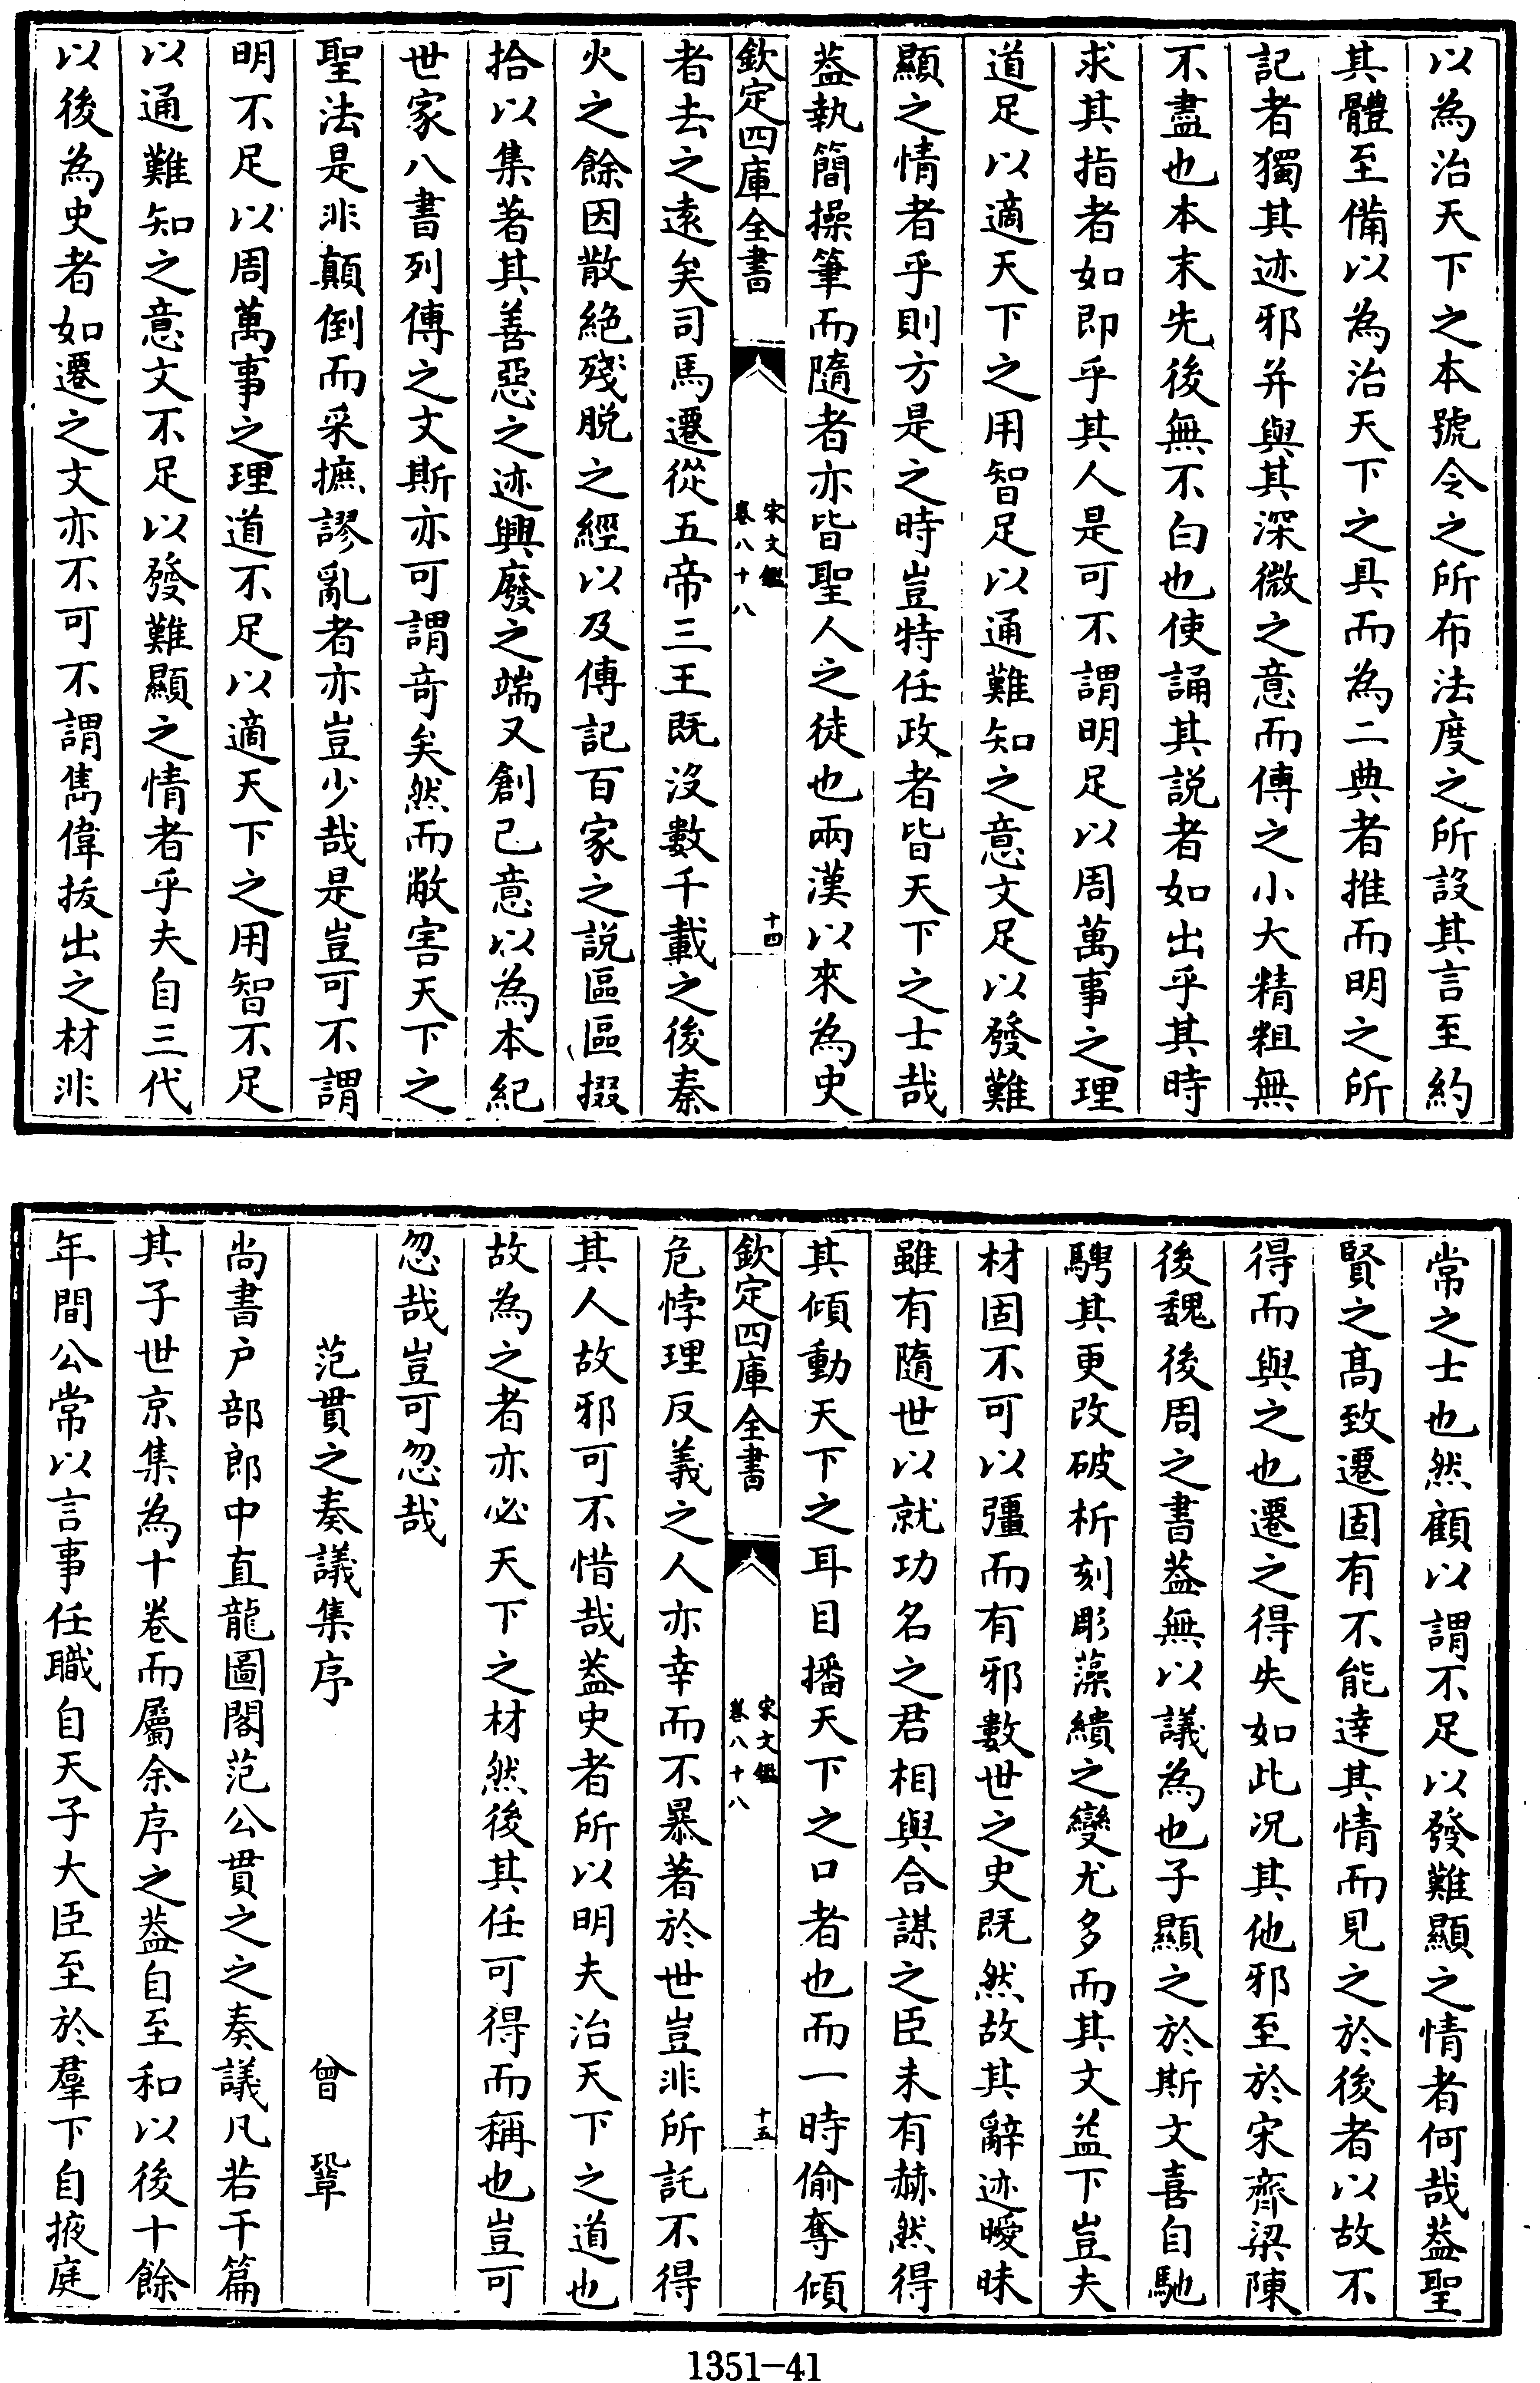 以為治天下之本號令之所布法度之所設其言至約
其體至備以為治天下之具而為二典者推而明之所
記者獨其迹邪并與其深微之意而傳之小大精粗無
不盡也本末先後無不白也使誦其説者如出乎其時
求其指者如即乎其人是可不謂明足以周萬事之理
道足以適天下之用智足以通難知之意文足以發難
顯之情者乎則方是之時豈特任政者皆天下之士哉
葢執簡操筆而隨者亦皆聖人之徒也兩漢以來為史
欽定四庫全書
宋文鑑
卷八十八
十四
者去之逺矣司馬遷從五帝三王既沒數千載之後秦
火之餘因散絶殘脱之經以及傳記百家之説區區掇
拾以集著其善惡之迹興廢之端又創己意以為本紀
世家八書列傳之文斯亦可謂奇矣然而敝害天下之
聖法是非顛倒而采摭謬亂者亦豈少哉是豈可不謂
明不足以周萬事之理道不足以適天下之用智不足
以通難知之意文不足以發難顯之情者乎夫自三代
以後為史者如遷之文亦不可不謂雋偉拔出之材非
常之士也然顧以謂不足以發難顯之情者何哉葢聖
賢之髙致遷固有不能逹其情而見之於後者以故不
得而與之也遷之得失如此况其他邪至於宋齊梁陳
後魏後周之書葢無以議為也子顯之於斯文喜自馳
騁其更改破析刻彫藻繢之變尤多而其文益下豈夫
材固不可以彊而有邪數世之史既然故其辭迹曖昧
雖有隨世以就功名之君相與合謀之臣未有赫然得
其傾動天下之耳目播天下之口者也而一時偷奪傾
欽定四庫全書
宋文鑑
卷八十八
十五
危悖理反義之人亦幸而不暴著於世豈非所託不得
其人故邪可不惜哉葢史者所以明夫治天下之道也
故為之者亦必天下之材然後其任可得而稱也豈可
忽哉豈可忽哉
范貫之奏議集序 曾鞏
尚書户部郎中直龍圖閣范公貫之之奏議凡若干篇
其子世京集為十卷而屬余序之葢自至和以後十餘
年間公常以言事任職自天子大臣至於羣下自掖庭
1351-41